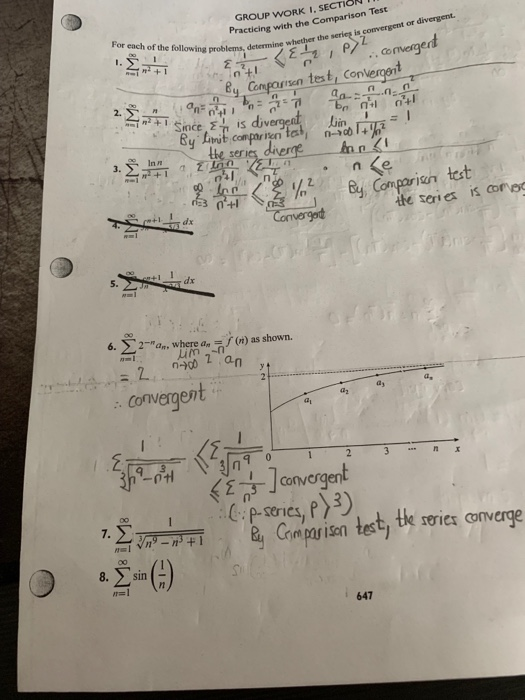 GROUP WORK 1, SECTION
Practicing with the Comparison Test
For each of the following problems, determine whether the series is convergent or divergent.
1. ∑_{n=1}^{∞} 1/(n² + 1)
∑ 1/(n²+1) < ∑ 1/n², P>2 ∴ convergent
By Comparison test, convergent
2. ∑_{n=1}^{∞} n/(n² + 1)
a_n = n/(n²+1), b_n = n/n² = 1/n
since ∑ 1/n is divergent
By limit comparison test,
the series diverge
lim_{n→∞} 1/(1+1/n²) = 1
3. ∑_{n=1}^{∞} ln n/(n² + 1)
ln n < 1
n < e
∑_{n=3}^{∞} ln n/(n²+1) < ∑_{n=3}^{∞} 1/n²
Convergent
By Comparison test
the series is
4. ∑_{n=1}^{∞} dx
5. ∑_{n=1}^{∞} dx
6. ∑_{n=1}^{∞} 2^{-n} a_n, where a_n = f(n) as shown.
lim_{n→∞} 2^{-n} a_n
= 2
∴ convergent
y
2
a₁ a₂ a₃ a_n
0 1 2 3 ... n x
∑ 1/∛(n⁹-n³+1) < ∑ 1/∛n⁹
< ∑ 1/n³ ] convergent
(∵ p-series, P>3)
By Comparison test, the series converge
7. ∑_{n=1}^{∞} 1/∛(n⁹ − n³ + 1)
8. ∑_{n=1}^{∞} sin (1/n)
647